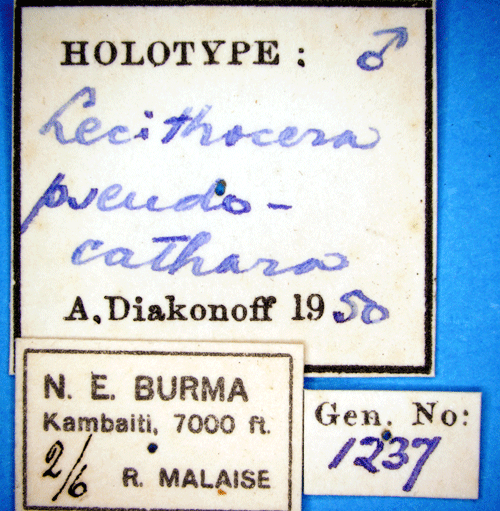 HOLOTYPE: ♂
Lecithocera
pseudo-
cathara
A. Diakonoff 1950
N. E. BURMA
Kambaiti, 7000 ft.
2/6 R. MALAISE
Gen. No:
1237